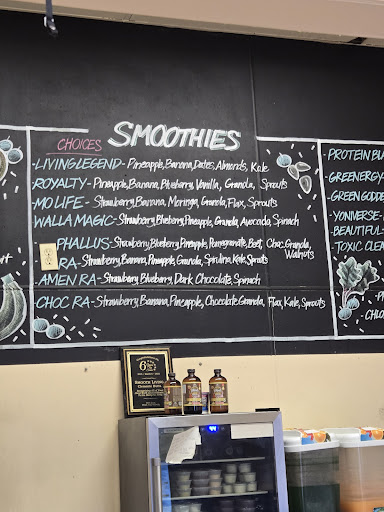 SMOOTHIES
CHOICES
-LIVING LEGEND- Pineapple, Banana, Dates, Almonds, Kale
-ROYALTY- Pineapple, Banana, Blueberry, Vanilla, Granola, Sprouts
-MO LIFE- Strawberry, Banana, Moringa, Granola, Flax, Sprouts
-WALLA MAGIC- Strawberry, Blueberry, Pineapple, Granola, Avocado, Spinach
PHALLUS- Strawberry, Blueberry, Pineapple, Pomegranate, Beet, Choc, Granola, Walnuts
RA- Strawberry, Banana, Pineapple, Granola, Spirulina, Kale, Sprouts
-AMEN RA- Strawberry, Blueberry, Dark Chocolate, Spinach
-CHOC RA- Strawberry, Banana, Pineapple, Chocolate Granola, Flax, Kale, Sprouts
-PROTEIN BL
-GREENERGY-
-GREEN GODDE
-YONIVERSE-
-BEAUTIFUL-
-TOXIC CLEA